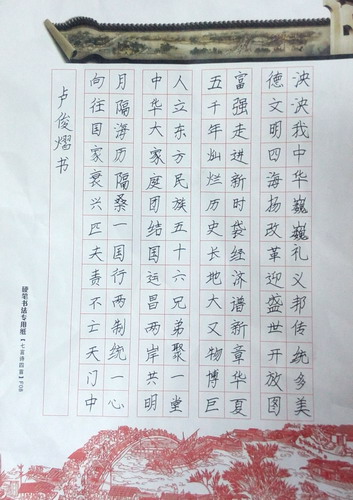 泱泱我中华巍巍礼义邦传统多美
德文明四海扬改革迎盛世开放图
富强走进新时袋经济谱新章华夏
五千年灿烂历史长地大又物博巨
人立东方民族五十六兄弟聚一堂
中华大家庭团结国运昌两岸共明
月隔海历隔桑一国行两制统一心
向往国家衰兴匹夫责不亡天门中
卢俊熠书
硬笔书法专用纸【七言诗四首】F08